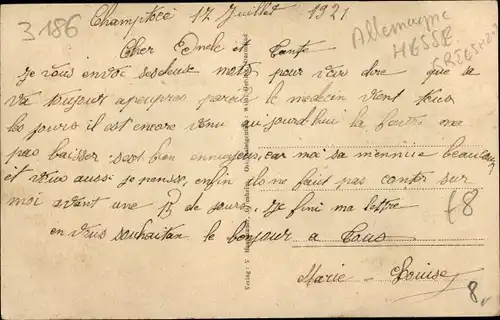 3186
Champtocé 17 Juillet 1921
Allemagne
HESSE
GRIESHEIM
Cher Oncle et Tante
Je vous envoi ses deux mots pour vous dire que sa
va toujour apeuprès pareil le medecin vient tous
les jours il est encore venu aujourd'hui la fievre ne
pas baisser sest bien ennuyeux, car moi sa m'ennuie beaucoup
et vous aussi je pensse, enfin il ne faut pas conter sur
moi avant une 15 de jours. Je fini ma lettre
en vous souhaitan le bonjour a tous
Marie-Louise
£8
8
Verlag: